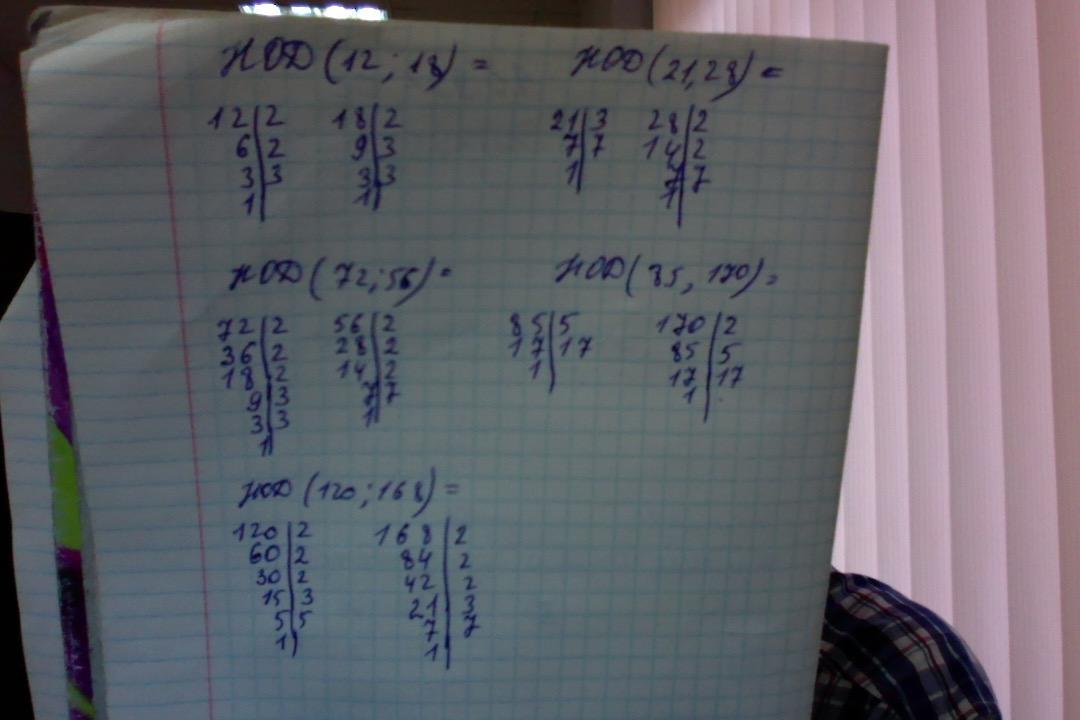 НОД (12; 18) = НОД (21, 28) =
12|2 18|2 21|3 28|2
6|2 9|3 7|7 14|2
3|3 3|3 1| 7|7
1| 1| 1|
НОД (72; 56) = НОД (85, 170) =
72|2 56|2 85|5 170|2
36|2 28|2 17|17 85|5
18|2 14|2 1| 17|17
9|3 7|7 1|
3|3 1|
1|
НОД (120; 168) =
120|2 168|2
60|2 84|2
30|2 42|2
15|3 21|3
5|5 7|7
1| 1|